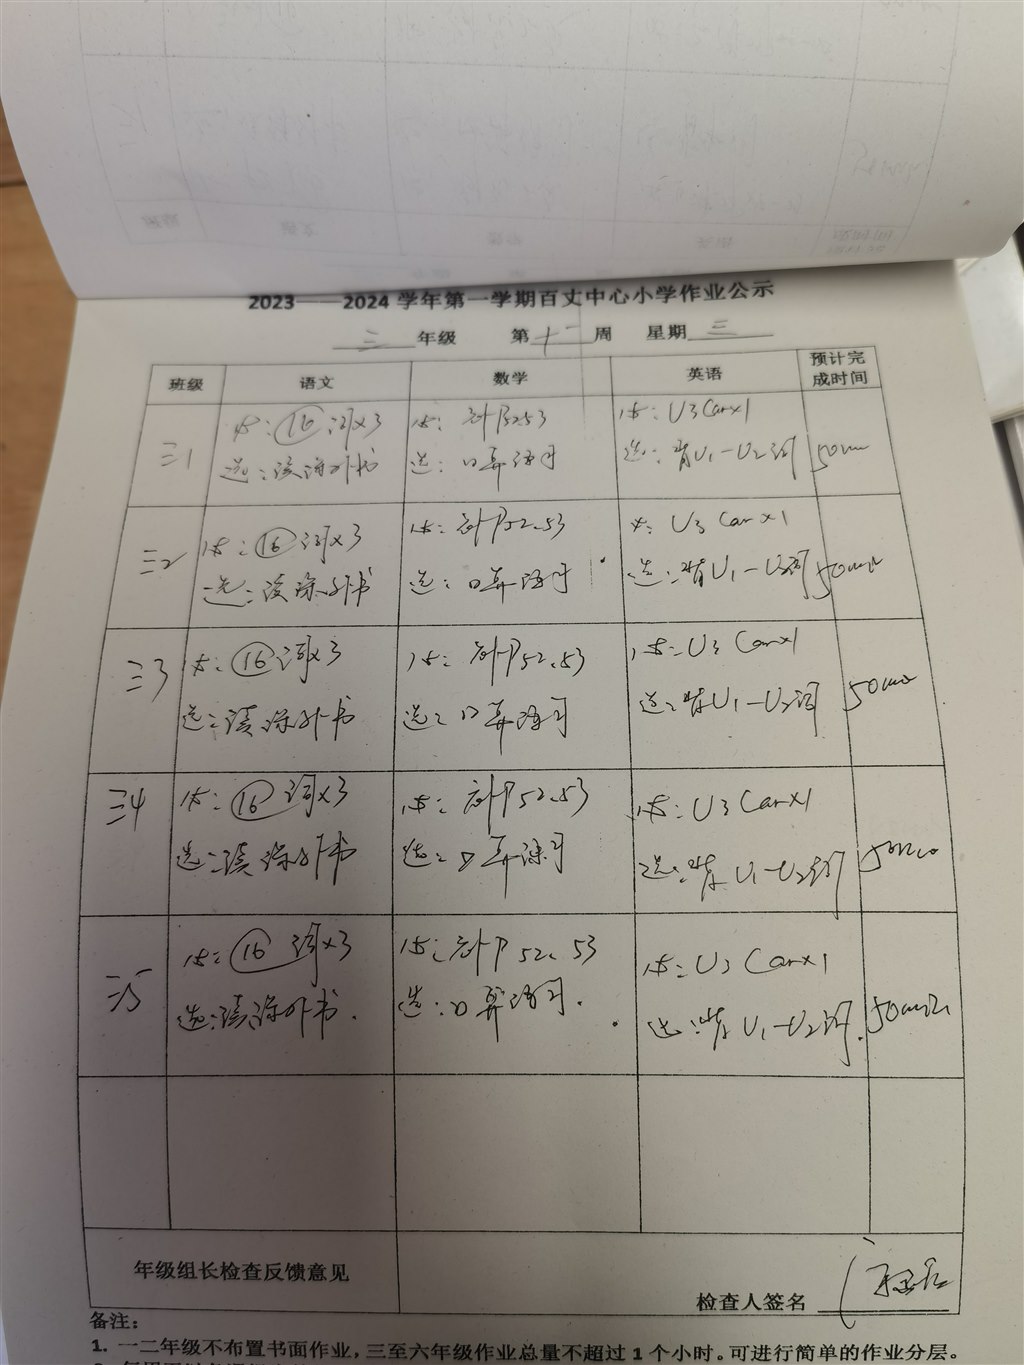 2023——2024 学年第一学期百丈中心小学作业公示
三 年级 第 十一 周 星期 三
班级 语文 数学 英语 预计完成时间
三1 16 词×3 P52.53 U3 Car×1
选:读课外书 选:口算练习 选:背U1-U2词 50min
三2 16 词×3 P52.53 U3 Car×1
选:读课外书 选:口算练习 选:背U1-U2词 50min
三3 16 词×3 P52.53 U3 Car×1
选:读课外书 选:口算练习 选:背U1-U2词 50min
三4 16 词×3 P52.53 U3 Car×1
选:读课外书 选:口算练习 选:背U1-U2词 50min
三5 16 词×3 P52、53 U3 Car×1
选:读课外书. 选:口算练习. 选:背U1-U2词. 50min
年级组长检查反馈意见
检查人签名
备注:
1. 一二年级不布置书面作业,三至六年级作业总量不超过 1 个小时。可进行简单的作业分层。